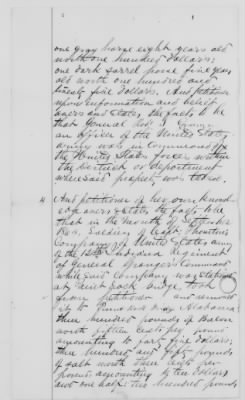 one gray horse eight years old
worth one hundred dollars;
one dark sorrel horse five years
old worth one hundred and
twenty five dollars. And petitioner
upon information and belief
avers and states the facts to be
that General
an officer of the United States
army was in Command of
the United States forces within
the District or department
where said property was taken.
4 And petitioner of her own knowl
edge avers & states the facts to be
that in the month of
1863, Soldiers of Capt.
Company of United States army
of the 12th Indiana Regiment
of General Command
while said Company was stationed
at Paint Rock bridge, took
from petitioner and removed
it to Alabama
three hundred pounds of Bacon
worth fifteen cents per pound
amounting to forty five dollars;
three hundred and fifty pounds
of salt worth three cents per
pound amounting to ten dollars
and one half; two hundred pounds